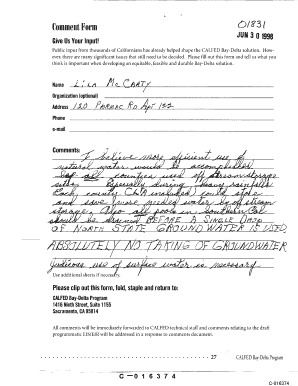 Comment Form
01831
JUN 30 1998
Give Us Your Input!
Public input from thousands of Californians has already helped shape the CALFED Bay-Delta solution. However there are many significant issues that still need to be decided. Please fill out this form and tell us what you
think is important when developing an equitable, feasible and durable Bay-Delta solution.
Name Lila McCarty
Organization (optional)
Address 120 Parmac Rd Apt 122
Phone
e-mail
Comments:
I believe more efficient use of
natural water needs to be accomplished
all counties used off stream storage
sites. Especially during heavy rainfalls
Each county could store
and save more needed water by off stream
storage. Also all pools in Southern Cal
should be drained BEFORE A SINGLE DROP
OF NORTH STATE GROUNDWATER IS USED.
ABSOLUTELY NO TAKING OF GROUNDWATER
Judicious use of surface water is necessary
Use additional sheets if necessary.
Please clip out this form, fold, staple and return to:
CALFED Bay-Delta Program
1416 Ninth Street, Suite 1155
Sacramento, CA 95814
All comments will be immediately forwarded to CALFED technical staff and comments relating to the draft
programmatic EIS/EIR will be addressed in a response to comments document.
27 CALFED Bay-Delta Program
C-016374
C-016374